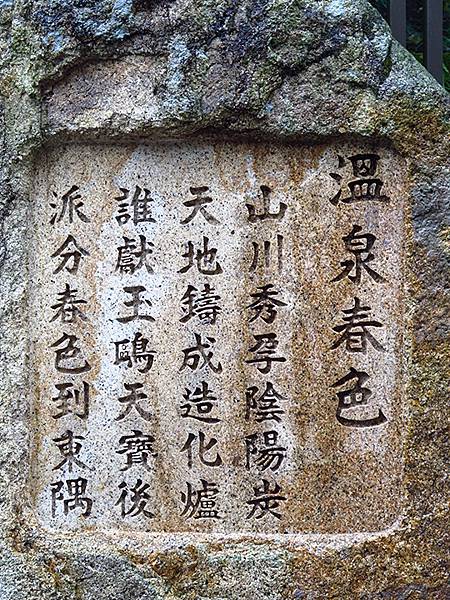 溫泉春色
山川秀孕陰陽炭
天地鑄成造化爐
誰獻玉鷗天寶後
派分春色到東隅